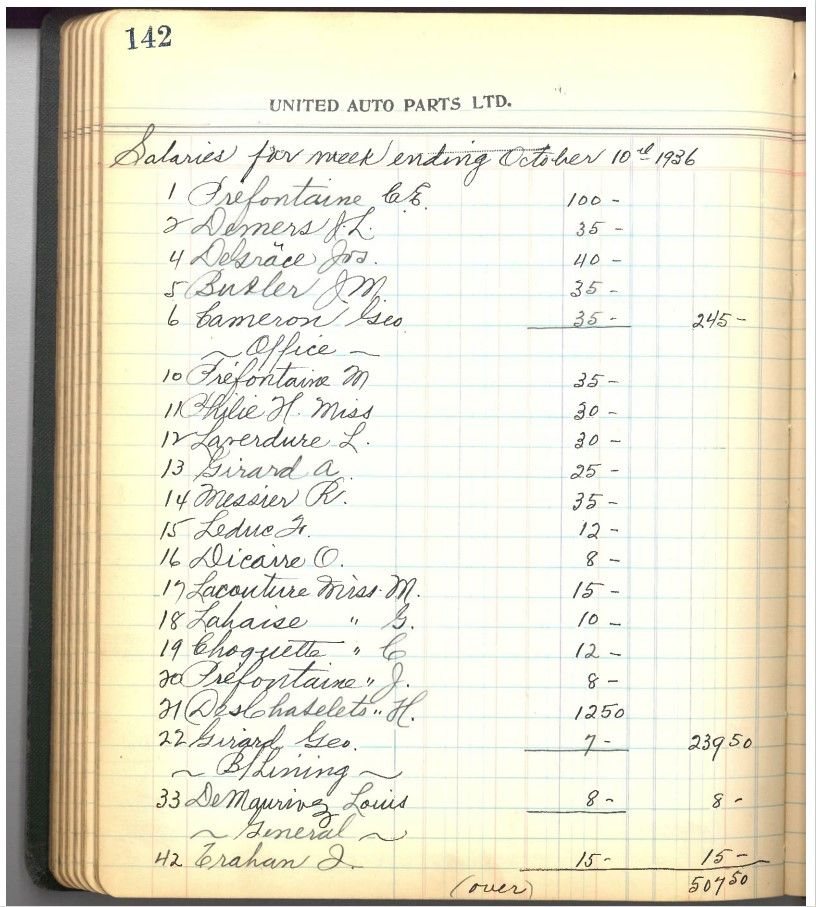 142
UNITED AUTO PARTS LTD.
Salaries for week ending October 10th 1936
1 Prefontaine C.E. 100 -
2 Demers J.L. 35 -
4 DeGrâce Jos. 40 -
5 Butler J M 35 -
6 Cameron Geo 35 - 245 -
~ Office ~
10 Préfontaine M 35 -
11 Philie H. Miss 30 -
12 Laverdure L. 30 -
13 Girard A. 25 -
14 Messier R. 35 -
15 Leduc Fr. 12 -
16 Dicaire O. 8 -
17 Lacouture Miss. M. 15 -
18 Lahaise " G. 10 -
19 Choquette " C 12 -
20 Prefontaine " J. 8 -
21 DesChatelets " H. 12 50
22 Girard Geo. 7 - 239 50
~ B/Lining ~
33 Louis 8 - 8 -
~ General ~
42 Trahan J. 15 - 15 -
(over) 507 50